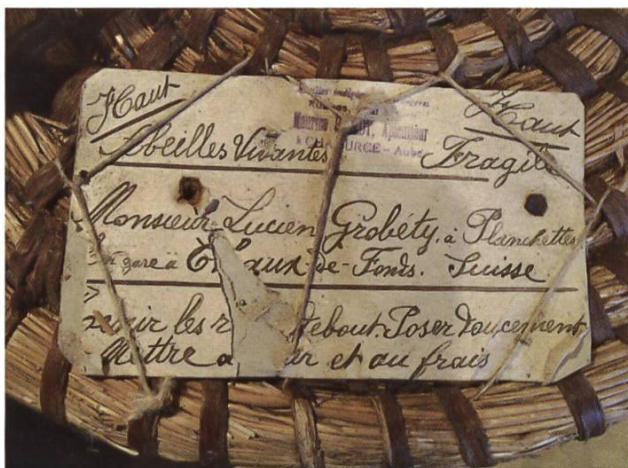 Haut
Haut
Abeilles Vivantes Fragile
Apiculteur
Aube
Monsieur Lucien Grobéty. à Planchettes
gare à Chaux-de-Fonds. Suisse
les debout. Poser doucement
Mettre et au frais